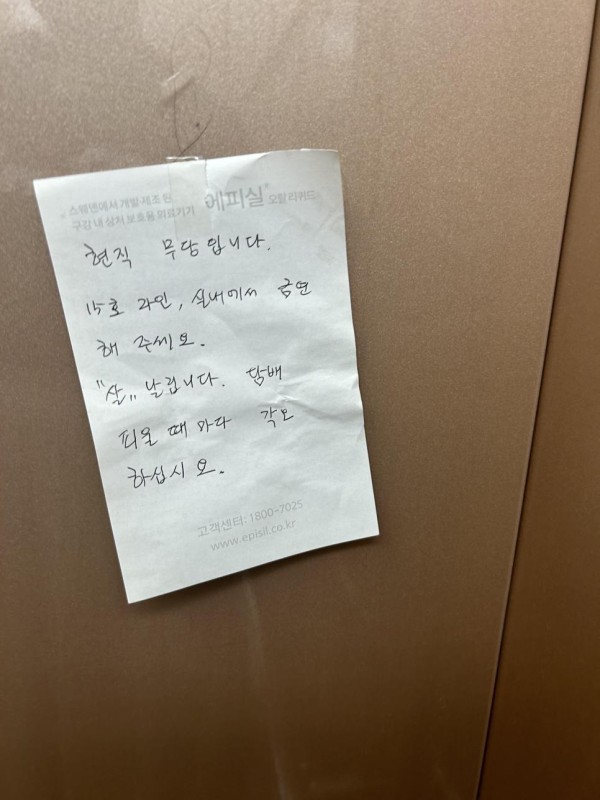 스웨덴에서 개발·제조된
구강 내 상처 보호용 의료기기 에피실® 오랄 리퀴드
현직 무당입니다.
15호 라인, 실내에서 금연
해 주세요.
"살" 날립니다. 담배
피울 때 마다 각오
하십시오.
고객센터: 1800-7025
www.episil.co.kr